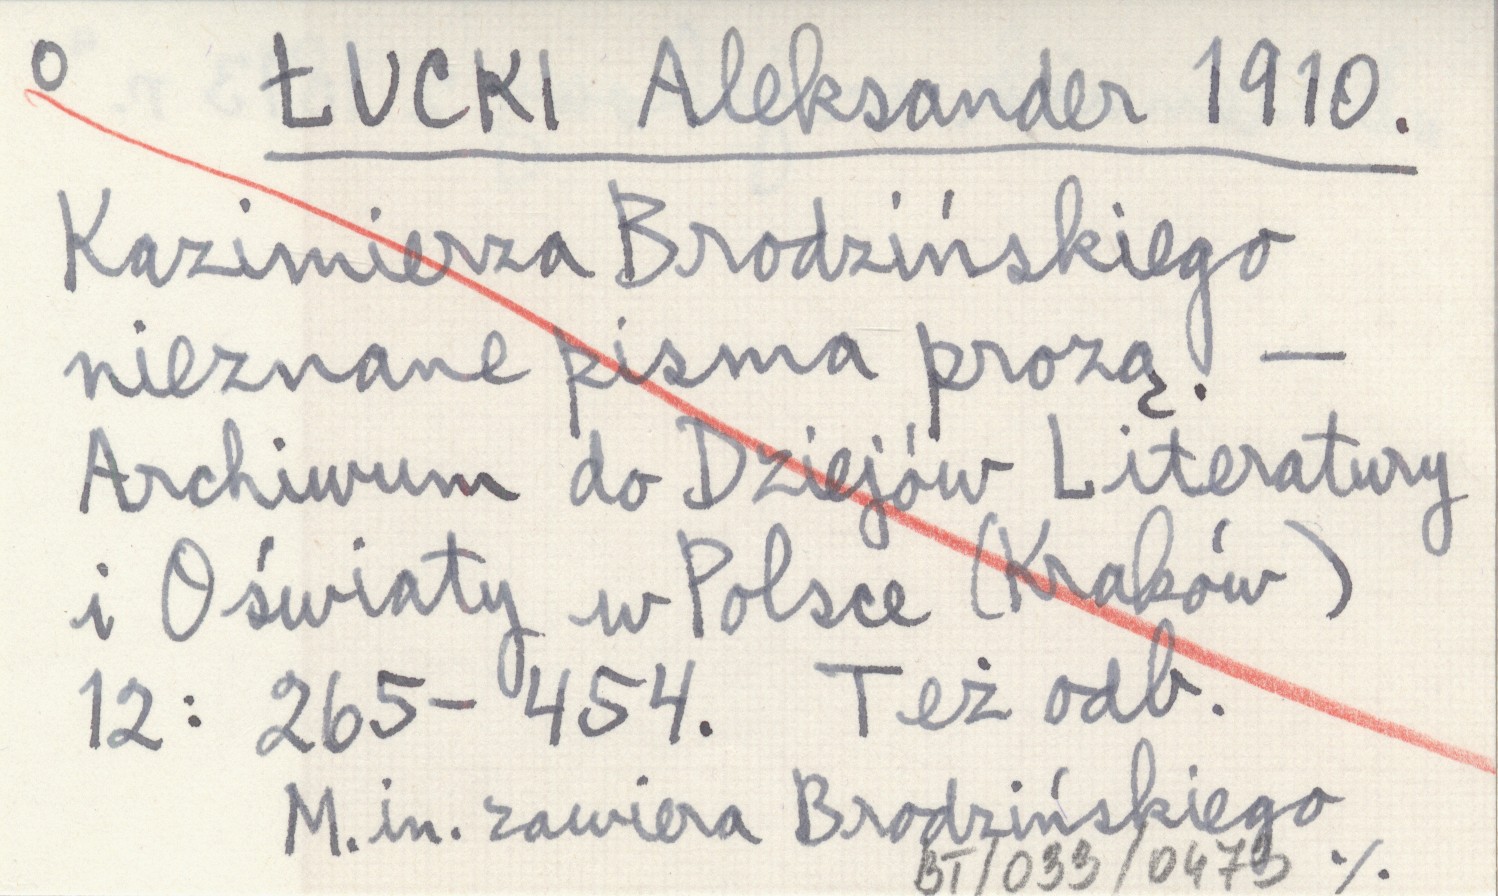 o ŁUCKI Aleksander 1910.
Kazimierza Brodzińskiego
nieznane pisma prozą. —
Archiwum do Dziejów Literatury
i Oświaty w Polsce (Kraków)
12: 265–454. Też odb.
M. in. zawiera Brodzińskiego
BT/033/0473 ·/.